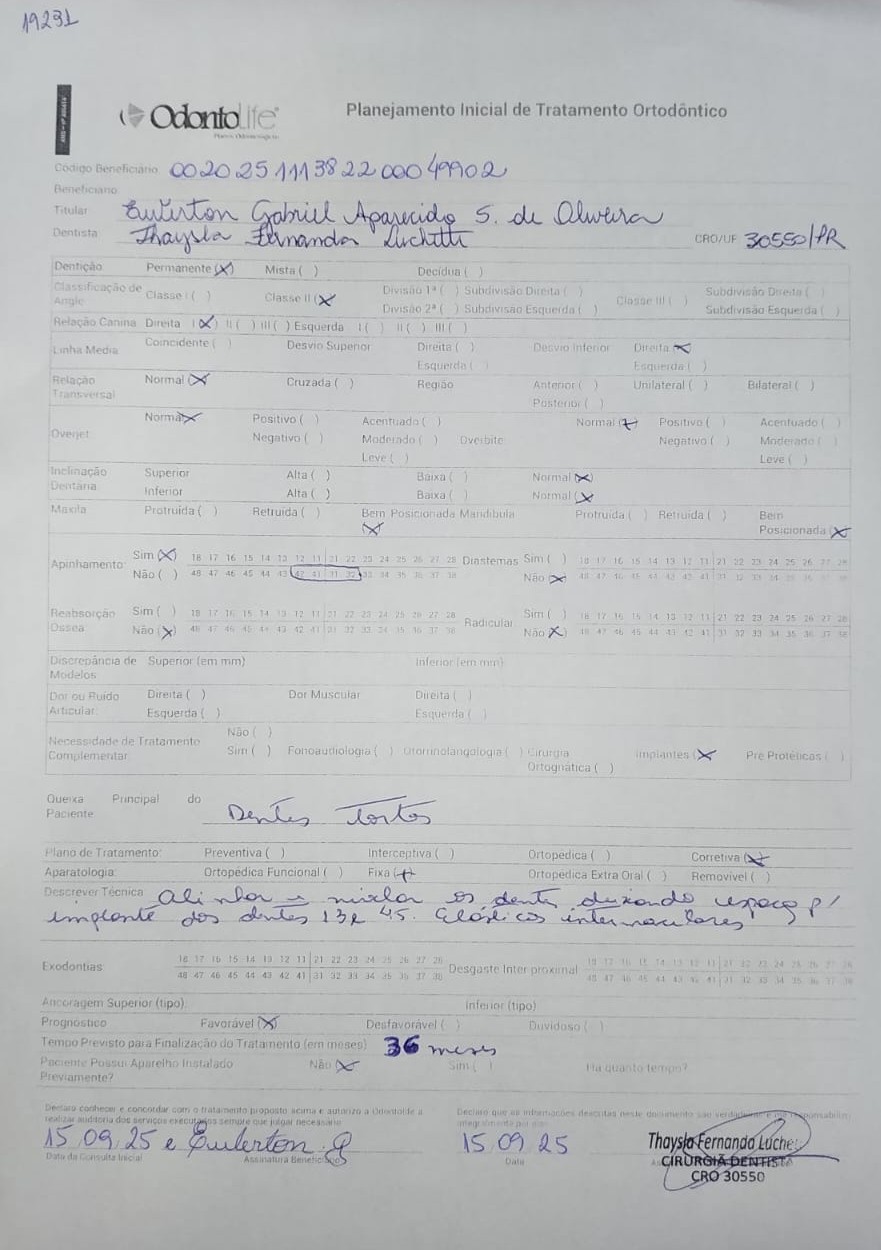 19231
OdontoLife
Planos Odontológicos
Planejamento Inicial de Tratamento Ortodôntico
Código Beneficiário 002025111382200049902
Beneficiário
Titular Eulerton Gabriel Aparecido S. de Oliveira
Dentista Thaysla Fernanda Luchetti CRO/UF 30550/PR
Dentição Permanente (X) Mista ( ) Decídua ( )
Classificação de Angle Classe I ( ) Classe II (X) Divisão 1ª ( ) Subdivisão Direita ( ) Classe III ( ) Subdivisão Direita ( )
Divisão 2ª ( ) Subdivisão Esquerda ( ) Subdivisão Esquerda ( )
Relação Canina Direita I (X) II ( ) III ( ) Esquerda I ( ) II ( ) III ( )
Linha Média Coincidente ( ) Desvio Superior Direita ( ) Desvio Inferior Direita (X)
Esquerda ( ) Esquerda ( )
Relação Transversal Normal (X) Cruzada ( ) Região Anterior ( ) Unilateral ( ) Bilateral ( )
Posterior ( )
Overjet Normal (X) Positivo ( ) Acentuado ( ) Normal (X) Positivo ( ) Acentuado ( )
Negativo ( ) Moderado ( ) Overbite Negativo ( ) Moderado ( )
Leve ( ) Leve ( )
Inclinação Dentária Superior Alta ( ) Baixa ( ) Normal (X)
Inferior Alta ( ) Baixa ( ) Normal (X)
Maxila Protruída ( ) Retruída ( ) Bem Posicionada (X) Mandíbula Protruída ( ) Retruída ( ) Bem Posicionada (X)
Apinhamento Sim (X) 18 17 16 15 14 13 12 11 21 22 23 24 25 26 27 28 Diastemas Sim ( ) 18 17 16 15 14 13 12 11 21 22 23 24 25 26 27 28
Não ( ) 48 47 46 45 44 43 42 41 31 32 33 34 35 36 37 38 Não (X) 48 47 46 45 44 43 42 41 31 32 33 34 35 36 37 38
Reabsorção Óssea Sim ( ) 18 17 16 15 14 13 12 11 21 22 23 24 25 26 27 28 Radicular Sim ( ) 18 17 16 15 14 13 12 11 21 22 23 24 25 26 27 28
Não (X) 48 47 46 45 44 43 42 41 31 32 33 34 35 36 37 38 Não (X) 48 47 46 45 44 43 42 41 31 32 33 34 35 36 37 38
Discrepância de Modelos Superior (em mm) Inferior (em mm)
Dor ou Ruído Articular Direita ( ) Dor Muscular Direita ( )
Esquerda ( ) Esquerda ( )
Necessidade de Tratamento Complementar Não ( )
Sim ( ) Fonoaudiologia ( ) Otorrinolaringologia ( ) Cirurgia Ortognática ( ) Implantes (X) Pré Protéticas ( )
Queixa Principal do Paciente Dentes Tortos
Plano de Tratamento: Preventiva ( ) Interceptiva ( ) Ortopédica ( ) Corretiva (X)
Aparatologia: Ortopédica Funcional ( ) Fixa (X) Ortopédica Extra Oral ( ) Removível ( )
Descrever Técnica Alinhar e nivelar os dentes deixando espaço p/
implante dos dentes 13 e 45. Elásticos intermaxilares
Exodontias: 18 17 16 15 14 13 12 11 21 22 23 24 25 26 27 28 Desgaste Inter proximal 18 17 16 15 14 13 12 11 21 22 23 24 25 26 27 28
48 47 46 45 44 43 42 41 31 32 33 34 35 36 37 38 48 47 46 45 44 43 42 41 31 32 33 34 35 36 37 38
Ancoragem Superior (tipo) Inferior (tipo)
Prognóstico Favorável (X) Desfavorável ( ) Duvidoso ( )
Tempo Previsto para Finalização do Tratamento (em meses) 36 meses
Paciente Possui Aparelho Instalado Previamente? Não (X) Sim ( ) Há quanto tempo?
Declaro conhecer e concordar com o tratamento proposto acima e autorizo a Odontolife a
realizar auditoria dos serviços executados sempre que julgar necessário
Declaro que as informações descritas neste documento são verdadeiras e me responsabilizo
integralmente por elas
15 09 25 e Eulerton G 15 09 25
Data da Consulta Inicial Assinatura Beneficiário Data
Thaysla Fernanda Luchetti
CIRURGIÃ DENTISTA
CRO 30550